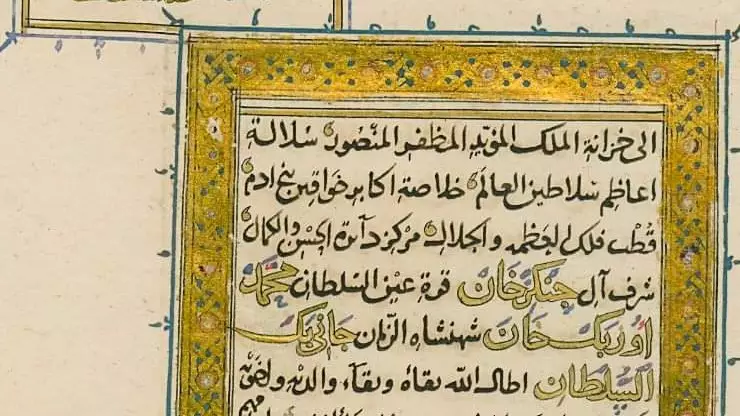 الى خزانة الملك المؤيد المظفر المنصور سلالة
اعاظم سلاطين العالم خلاصة اكابر خواقين بنى ادم
قطب فلك العظمه و الجلال مركز دآئرة الحسن والكمال
شرف آل جنكز خان قرة عين السلطان محمد
اوزبك خان شهنشاه الزمان جانى بك
السلطان اطال الله بقاه وبقاء والديه واخويه